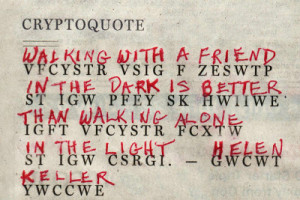 CRYPTOQUOTE
WALKING WITH A FRIEND
VFCYSTR VSIG F ZESWTP
IN THE DARK IS BETTER
ST IGW PFEY SK HWIIWE
THAN WALKING ALONE
IGFT VFCYSTR FCXTW
IN THE LIGHT HELEN
ST IGW CSRGI. – GWCWT
KELLER
YWCCWE